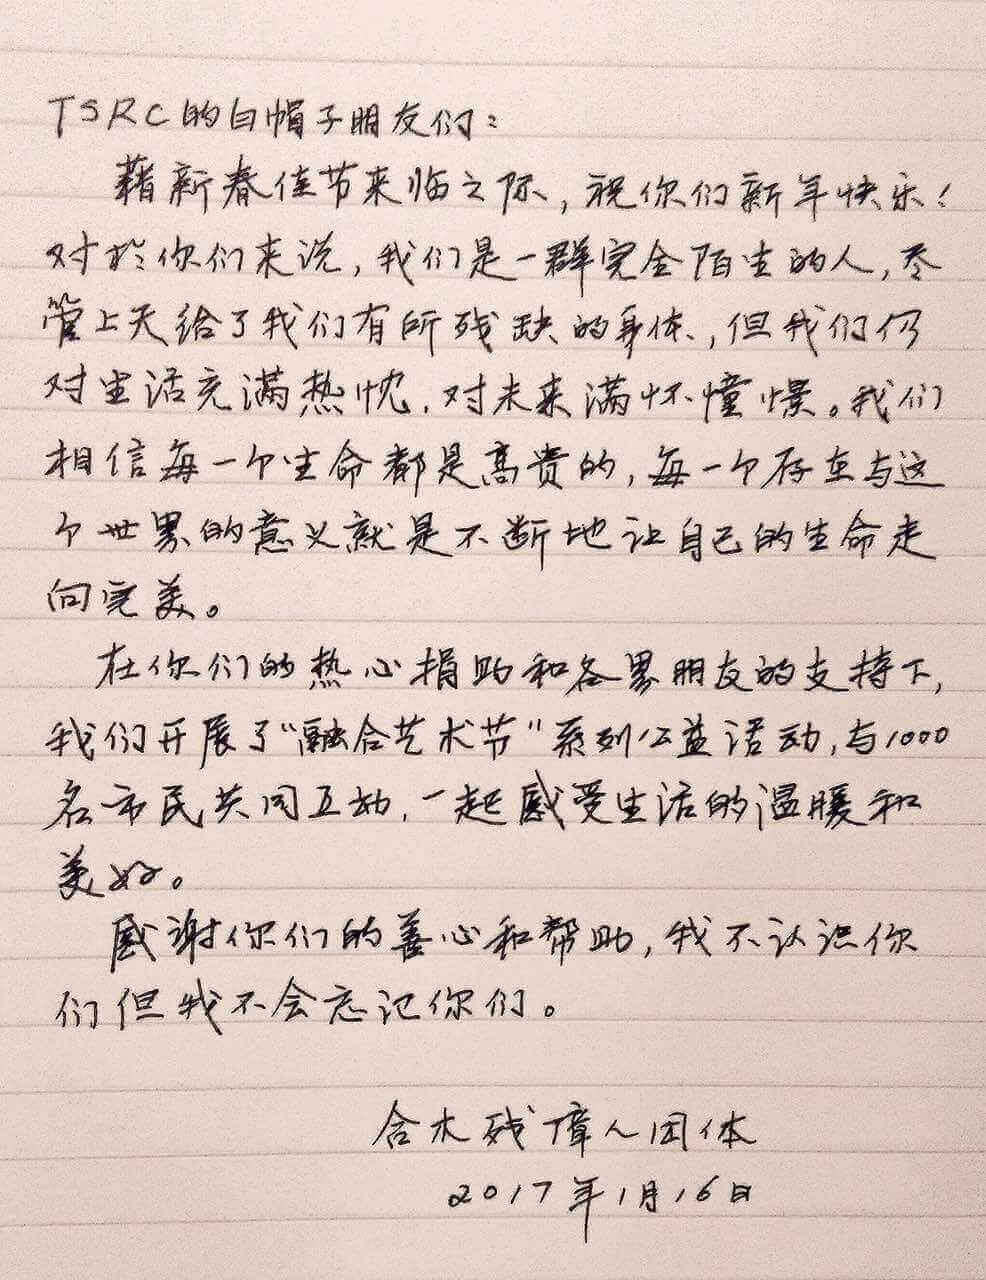 TSRC的白帽子朋友们：
藉新春佳节来临之际，祝你们新年快乐！
对於你们来说，我们是一群完全陌生的人，尽
管上天给了我们有所残缺的身体，但我们仍
对生活充满热忱，对未来满怀憧憬。我们
相信每一个生命都是高贵的，每一个存在与这
个世界的意义就是不断地让自己的生命走
向完美。
在你们的热心捐助和各界朋友的支持下，
我们开展了“融合艺术节”系列公益活动，与1000
名市民共同互动，一起感受生活的温暖和
美好。
感谢你们的善心和帮助，我不认识你
们但我不会忘记你们。
合木残障人团体
2017年1月16日